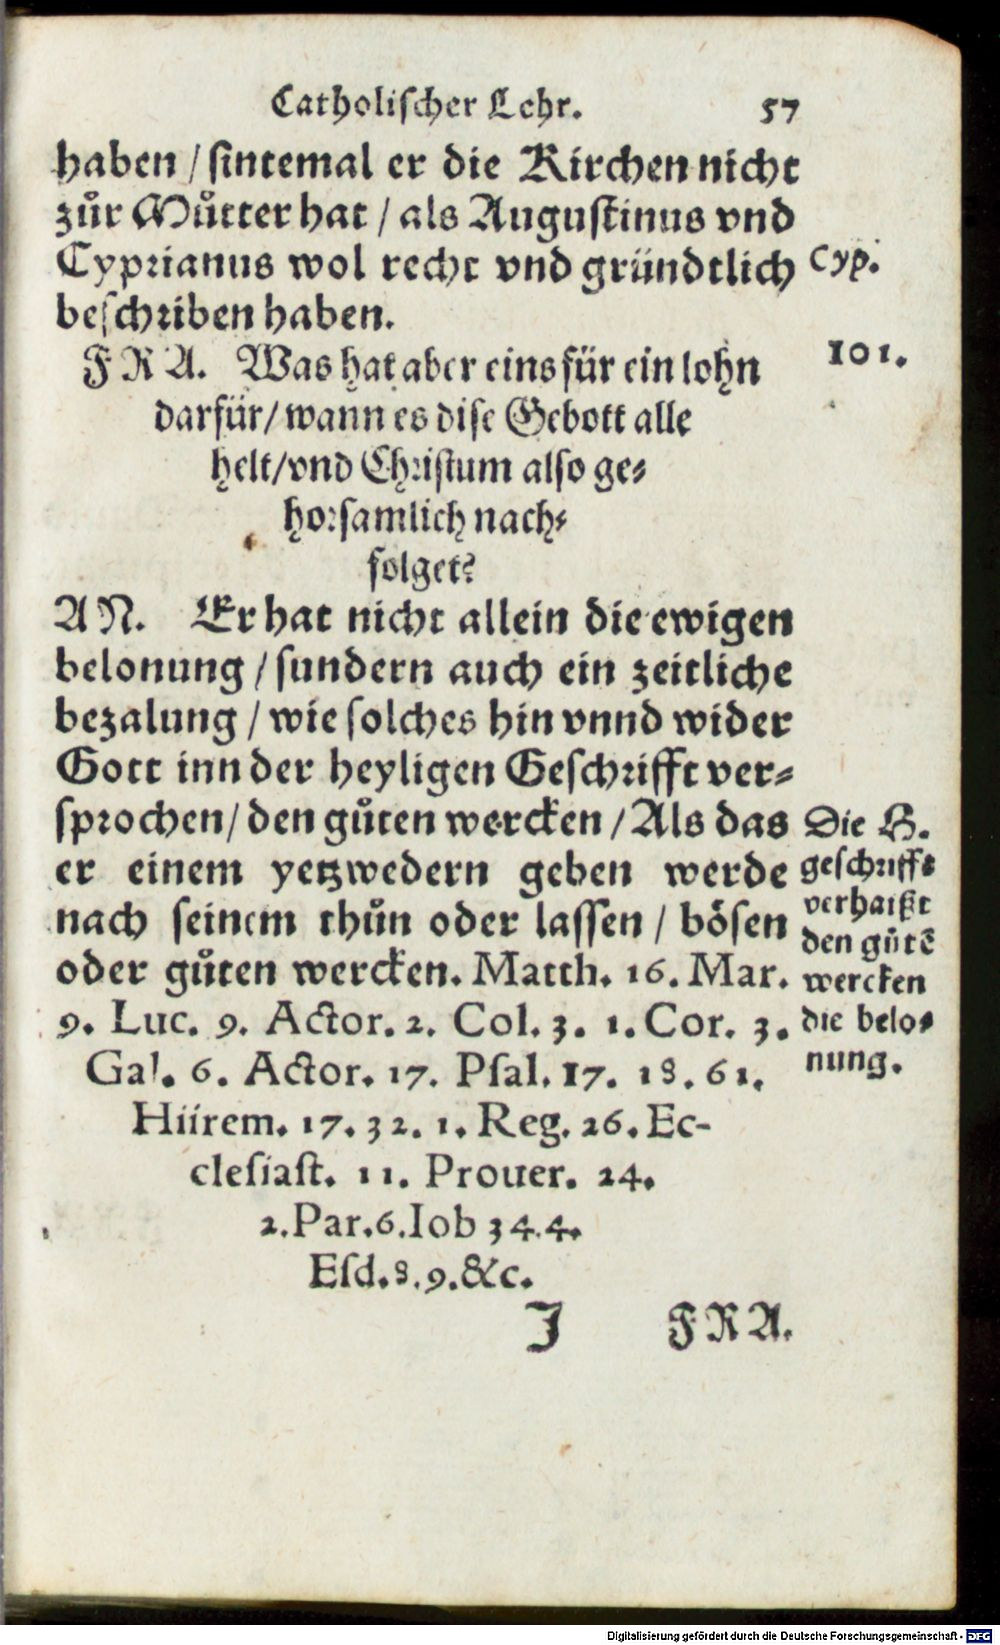 Catholischer Lehr. 57
haben / sintemal er die Kirchen nicht
zůr Můtter hat / als Augustinus vnd
Cyprianus wol recht vnd gründtlich
Cyp.
beschriben haben.
FRA. Was hat aber eins für ein lohn
101.
darfür / wann es dise Gebott alle
helt / vnd Christum also ge⸗
horsamlich nach⸗
folget?
AN. Er hat nicht allein die ewigen
belonung / sundern auch ein zeitliche
bezalung / wie solches hin vnnd wider
Gott inn der heyligen Geschrifft ver⸗
sprochen / den gůten wercken / Als das
er einem yetzwedern geben werde
nach seinem thůn oder lassen / bösen
oder gůten wercken. Matth. 16. Mar.
9. Luc. 9. Actor. 2. Col. 3. 1. Cor. 3.
Gal. 6. Actor. 17. Psal. 17. 18. 61.
Hiirem. 17. 32. 1. Reg. 26. Ec-
clesiast. 11. Prouer. 24.
2. Par. 6. Iob 34. 4.
Esd. 8. 9. &c.
Die H.
geschriff⸗
verhaißt
den gůtē
wercken
die belo⸗
nung.
J FRA.
Digitalisierung gefördert durch die Deutsche Forschungsgemeinschaft - DFG